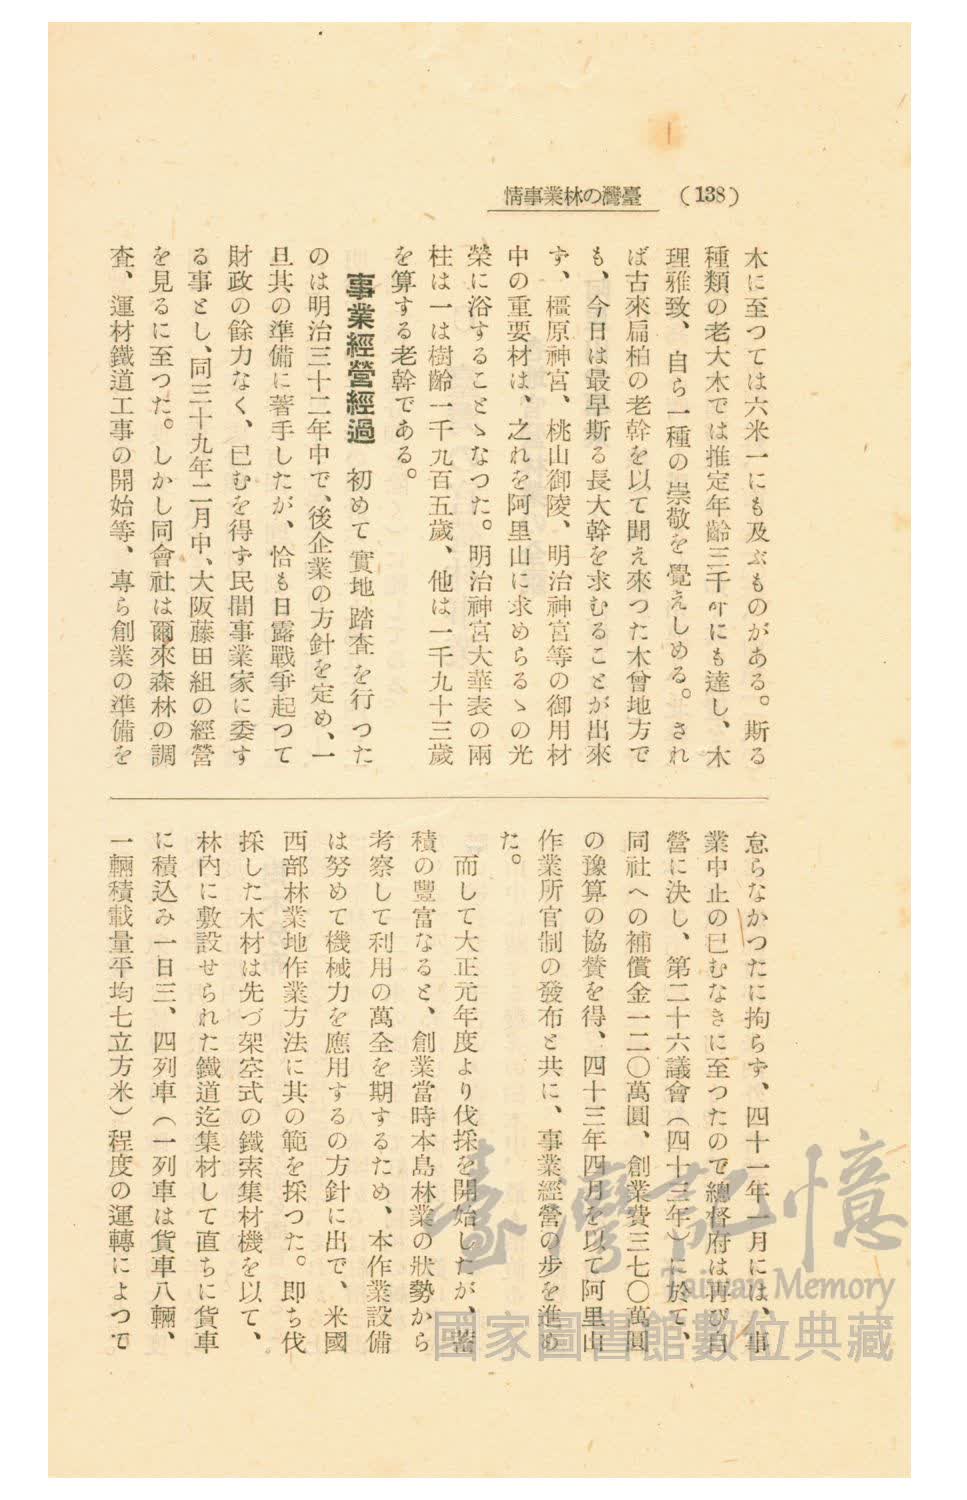 (138)
臺灣の林業事情
木に至つては六米一にも及ぶものがある。斯る
種類の老大木では推定年齡三千年にも達し、木
理雅致、自ら一種の崇敬を覺えしめる。され
ば古來扁柏の老幹を以て聞え來つた木曾地方で
も、今日は最早斯る長大幹を求むることが出來
ず、橿原神宮、桃山御陵、明治神宮等の御用材
中の重要材は、之れを阿里山に求めらるゝの光
榮に浴することゝなつた。明治神宮大華表の兩
柱は一は樹齡一千九百五歲、他は一千九十三歲
を算する老幹である。
事業經營經過 初めて實地踏査を行つた
のは明治三十二年中で、後企業の方針を定め、一
旦其の準備に著手したが、恰も日露戰爭起つて
財政の餘力なく、已むを得ず民間事業家に委す
る事とし、同三十九年二月中、大阪藤田組の經營
を見るに至つた。しかし同會社は爾來森林の調
査、運材鐵道工事の開始等、專ら創業の準備を
怠らなかつたに拘らず、四十一年一月には、事
業中止の已むなきに至つたので總督府は再び自
營に決し、第二十六議會(四十三年)に於て、
同社への補償金一二〇萬圓、創業費三七〇萬圓
の豫算の協贊を得、四十三年四月を以て阿里山
作業所官制の發布と共に、事業經營の步を進め
た。
而して大正元年度より伐採を開始したが、蓄
積の豐富なると、創業當時本島林業の狀勢から
考察して利用の萬全を期するため、本作業設備
は努めて機械力を應用するの方針に出で、米國
西部林業地作業方法に其の範を採つた。卽ち伐
採した木材は先づ架空式の鐵索集材機を以て、
林內に敷設せられた鐵道迄集材して直ちに貨車
に積込み一日三、四列車(一列車は貨車八輛、
一輛積載量平均七立方米)程度の運轉によつて
臺灣記憶
Taiwan Memory
國家圖書館數位典藏